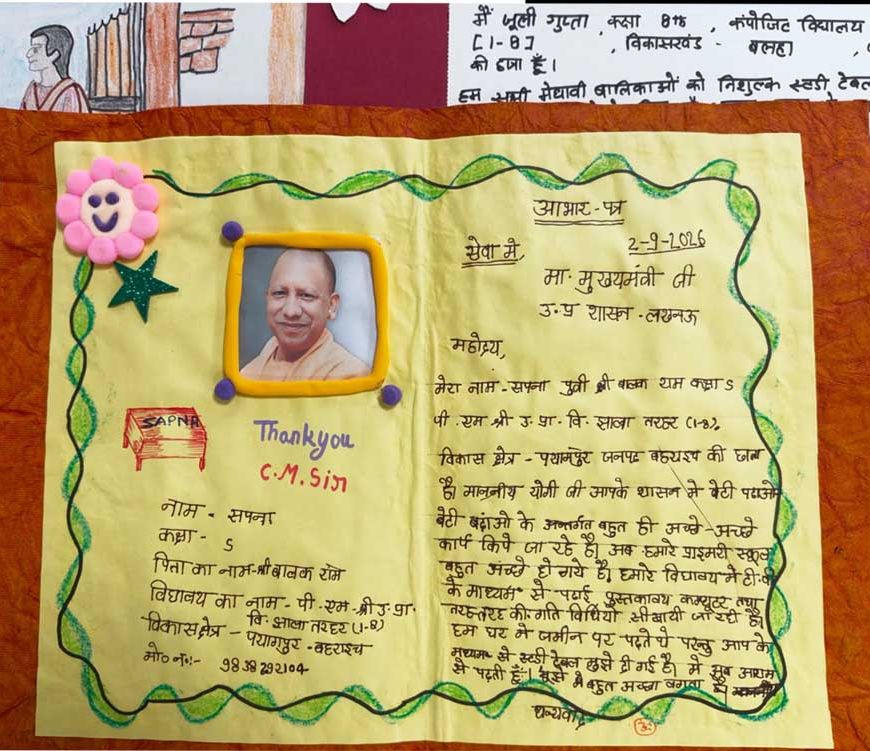 मैं जूली गुप्ता, कक्षा 8th, कंपोजिट विद्यालय
[1-8] , विकासखंड - बलहा
की छात्रा हूँ।
हम सभी मेधावी बालिकाओं को निशुल्क स्टडी टेबल
SAPNA
Thankyou
C.M.Sir
नाम - सपना
कक्षा - 5
पिता का नाम-श्री बालक राम
विद्यालय का नाम - पी. एम. श्री उ. प्रा.
वि. झाला तरहर (1-8)
विकास क्षेत्र - पयागपुर - बहराइच
मो० नं०:- 9838292104
आभार-पत्र
सेवा में, 2-9-2026
मा. मुख्यमंत्री जी
उ.प्र शासन - लखनऊ
महोदय,
मेरा नाम - सपना पुत्री श्री बालक राम कक्षा 5
पी. एम. श्री उ. प्रा. वि. झाला तरहर (1-8),
विकास क्षेत्र - पयागपुर जनपद बहराइच की छात्रा
है। माननीय योगी जी आपके शासन में बेटी पढाओ
बेटी बढ़ाओ के अन्तर्गत बहुत ही अच्छे-अच्छे
कार्य किये जा रहे है। अब हमारे प्राइमरी स्कूल
बहुत अच्छे हो गये है। हमारे विद्यालय में टी.वी
के माध्यम से पढ़ाई पुस्तकालय कम्प्यूटर तथा
तरह तरह की गति विधियाँ सीखायी जा रही है।
हम घर में जमीन पर पढ़ते थे परन्तु आप के
माध्यम से स्टडी टेबल मुझे दी गई है। मै खुब आराम
से पढ़ती हूँ। मुझे बहुत अच्छा लगता है।
धन्यवाद